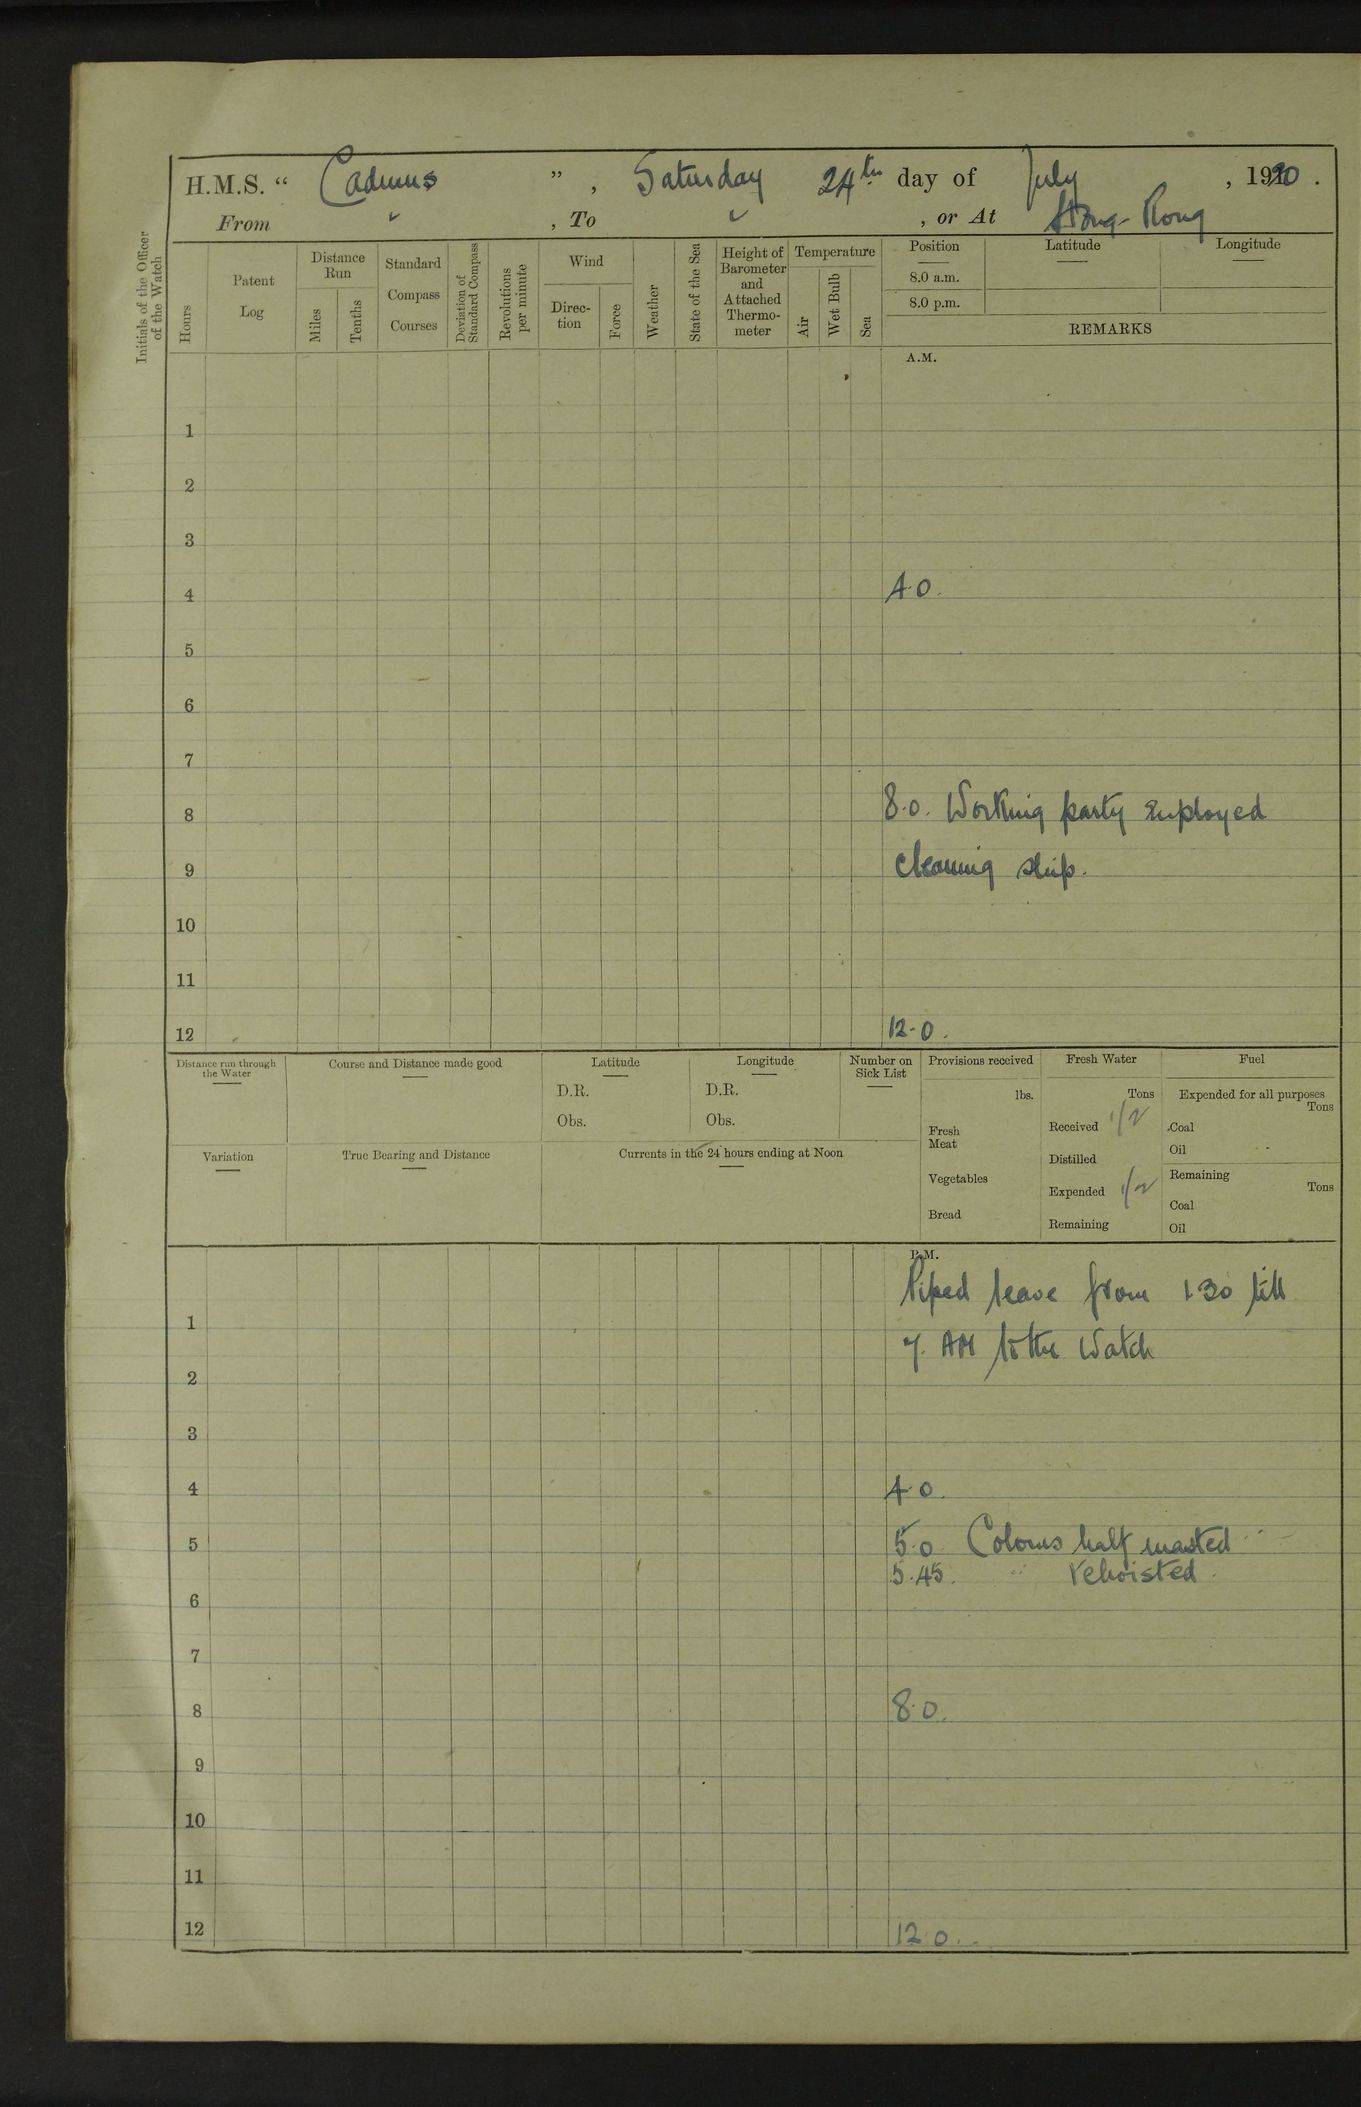 H.M.S. “ Cadmus ” , Saturday 24th day of July , 1920 .
From , To , or At Hong-Kong
Initials of the Officer of the Watch
Hours
Patent Log
Distance Run
Miles
Tenths
Standard Compass Courses
Deviation of Standard Compass
Revolutions per minute
Wind
Direc-tion
Force
Weather
State of the Sea
Height of Barometer and Attached Thermo-meter
Temperature
Air
Wet Bulb
Sea
Position
Latitude
Longitude
8.0 a.m.
8.0 p.m.
REMARKS
A.M.
1
2
3
4 4.0.
5
6
7
8 8.0. Working party employed
9 cleaning ship.
10
11
12 12.0.
Distance run through the Water
Course and Distance made good
Latitude
D.R.
Obs.
Longitude
D.R.
Obs.
Number on Sick List
Provisions received
lbs.
Fresh Meat
Vegetables
Bread
Fresh Water
Tons
Received 1/2
Distilled
Expended 1/2
Remaining
Fuel
Expended for all purposes
Tons
Coal
Oil
Remaining
Tons
Coal
Oil
Variation
True Bearing and Distance
Currents in the 24 hours ending at Noon
P.M.
Piped leave from 1.30 till
1
7. AM to the Watch
2
3
4 4.0.
5 5.0 Colours half masted
5.45. " rehoisted.
6
7
8 8.0.
9
10
11
12 12.0.